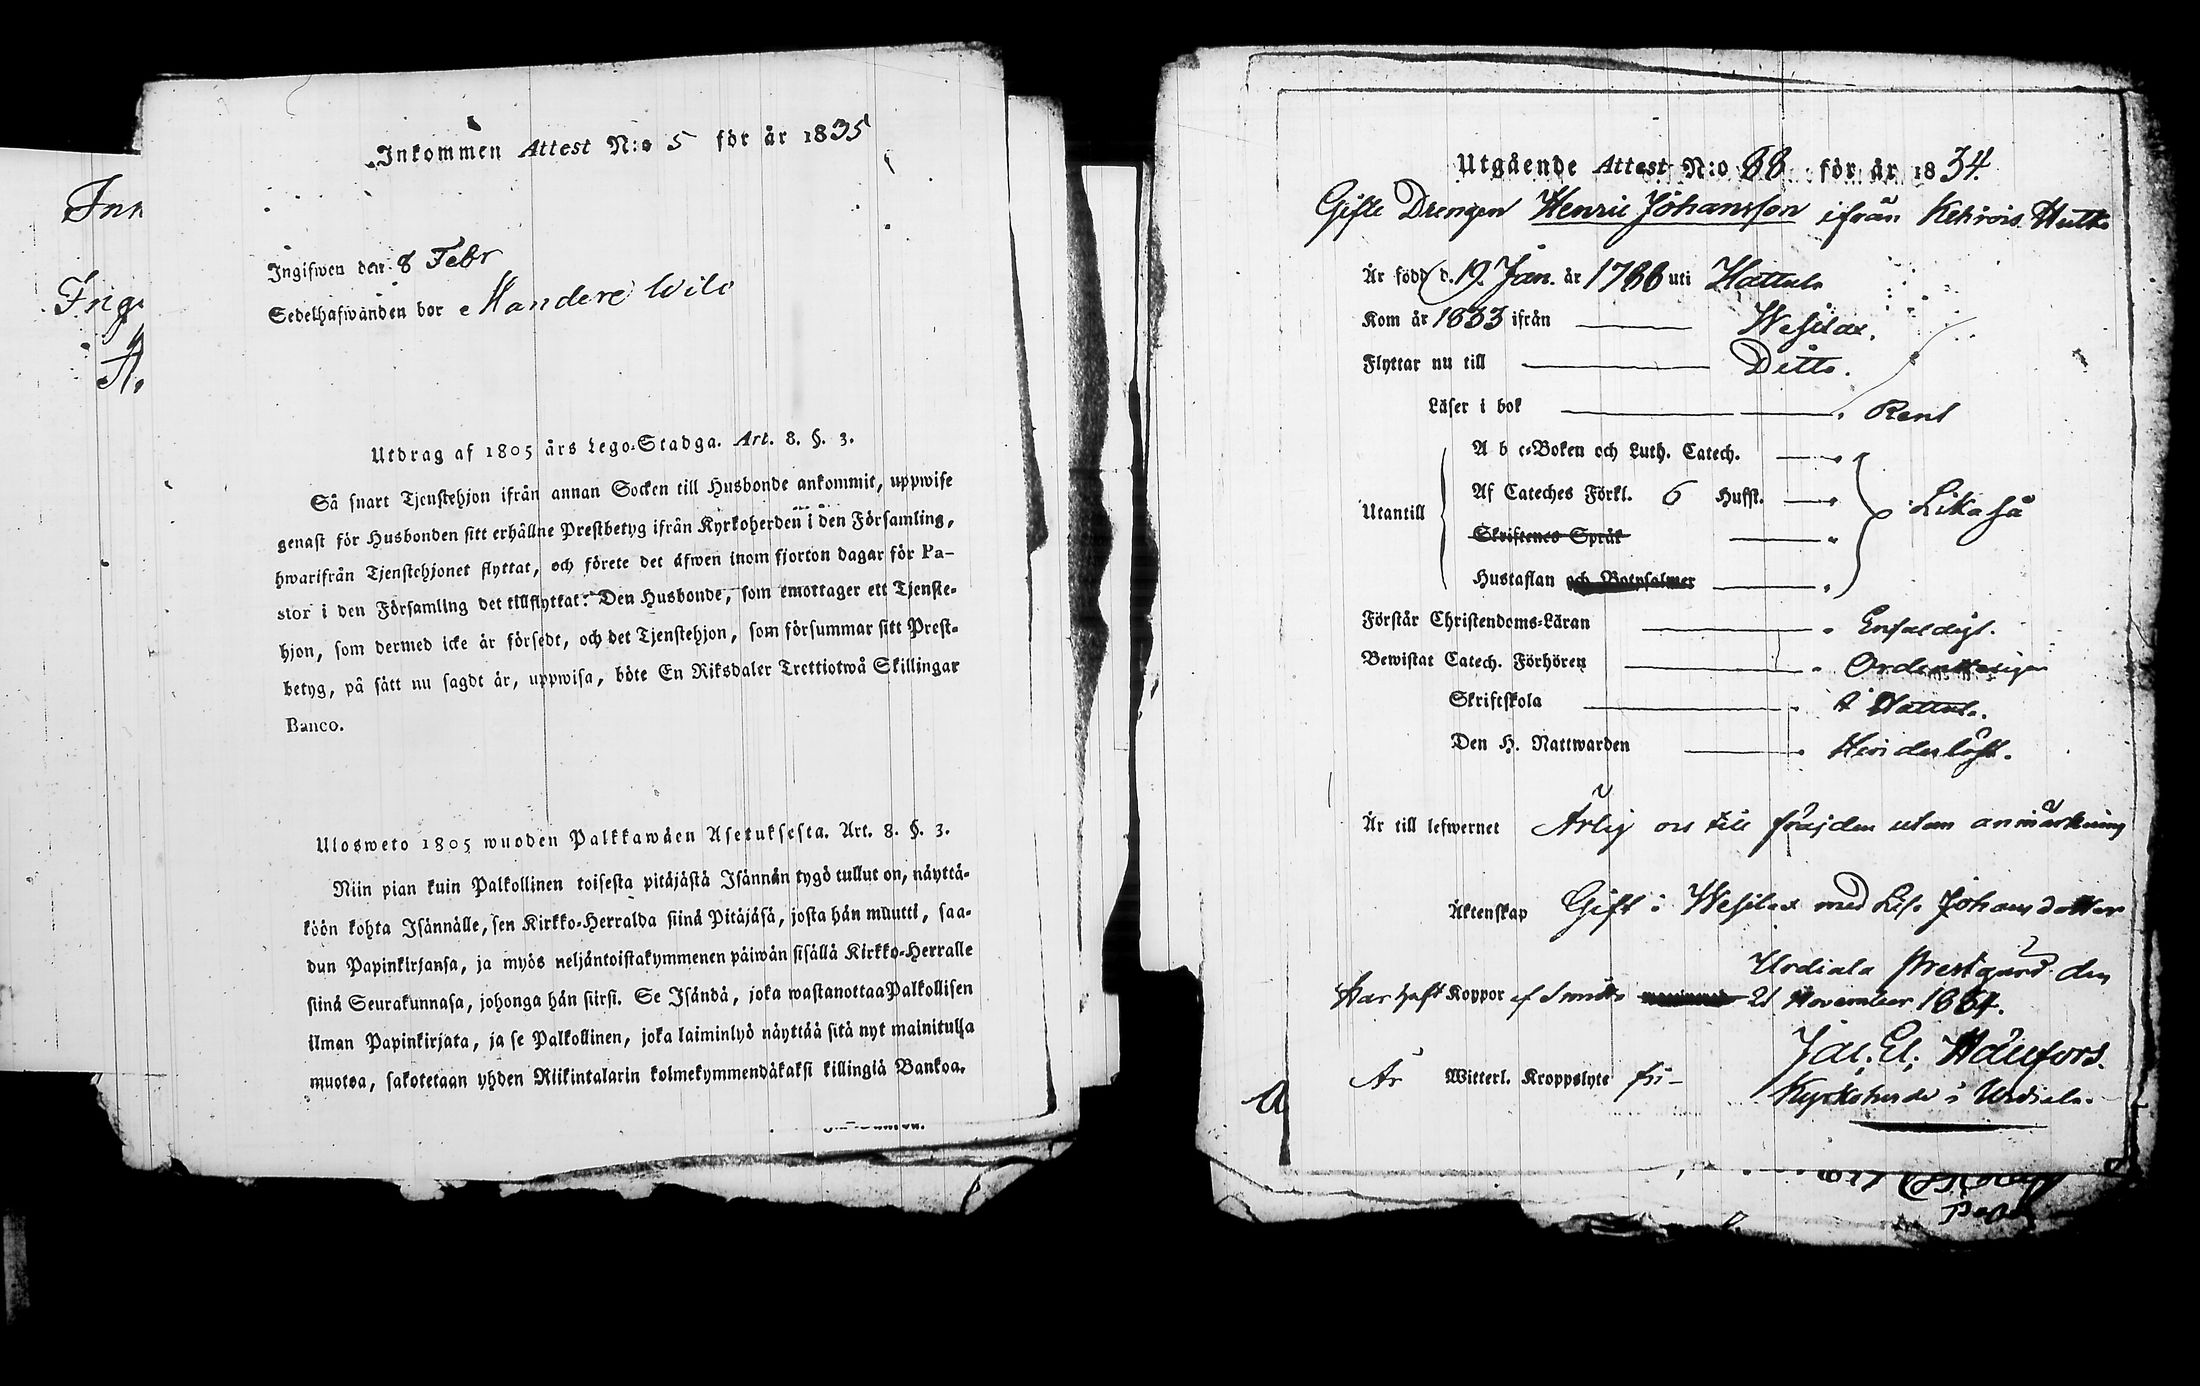 Inn
Inge
Inkommen Attest N:o 5 för år 1835
Ingifwen den 8 Febr
Sedelhafwanden bor
Utdrag af 1805 års Lego-Stadga. Art. 8. §. 3.
Så snart Tjenstehjon ifrån annan Socken till Husbonde ankommit, uppwise
genast för Husbonden sitt erhållne Prestbetyg ifrån Kyrkoherden i den Församling,
hwarifrån Tjenstehjonet flyttat, och förete det äfwen inom fjorton dagar för Pa-
stor i den Församling det tillflyttat. Den Husbonde, som emottager ett Tjenste-
hjon, som dermed icke är försedt, och det Tjenstehjon, som försummar sitt Prest-
betyg, på sätt nu sagdt är, uppwisa, böte En Riksdaler Trettiotwå Skillingar
Banco.
Ulosweto 1805 wuoden Palkkawäen Asetuksesta. Art. 8. §. 3.
Niin pian kuin Palkollinen toisesta pitäjästä Isännän tygö tullut on, näyttä-
köön kohta Isännälle, sen Kirkko-Herralda siinä Pitäjäsä, josta hän muutti, saa-
dun Papinkirjansa, ja myös neljäntoistakymmenen päiwän sisällä Kirkko-Herralle
siinä Seurakunnasa, johonga hän siirsi. Se Isändä, joka wastanottaa Palkollisen
ilman Papinkirjata, ja se Palkollinen, joka laiminlyö näyttää sitä nyt mainitulla
muotoa, sakotetaan yhden Riikintalarin kolmekymmendäkaksi killingiä Bankoa.
Utgående Attest N:o 88 för år 1834.
Gifte Drengen Henric Johansson ifrån Kehrois
Är född d. 19 Jan. år 1788 uti Hattula
Kom år 1833 ifrån Wesilax.
Flyttar nu till Ditto.
Läser i bok Rent
A b c-Boken och Luth. Catech.
Af Cateches Förkl. 6 Hufst.
Utantill Likaså
Skriftenes Språk
Hustaflan och Botpsalmer
Förstår Christendoms-Läran Enfaldigt.
Bewistat Catech. Förhören Ordentligen
Skriftskola i Hattula.
Den H. Nattwarden
Är till lefwernet Ärlig oc till fräjden utan anmärkning
Äktenskap Gift i Wesilax med Lisa Johansdotter
Urdiala Prestgård den
Har haft Koppor 21 November 1834.
Är Witterl. Kroppslyte fri
Kyrkoherde i Urdiala.